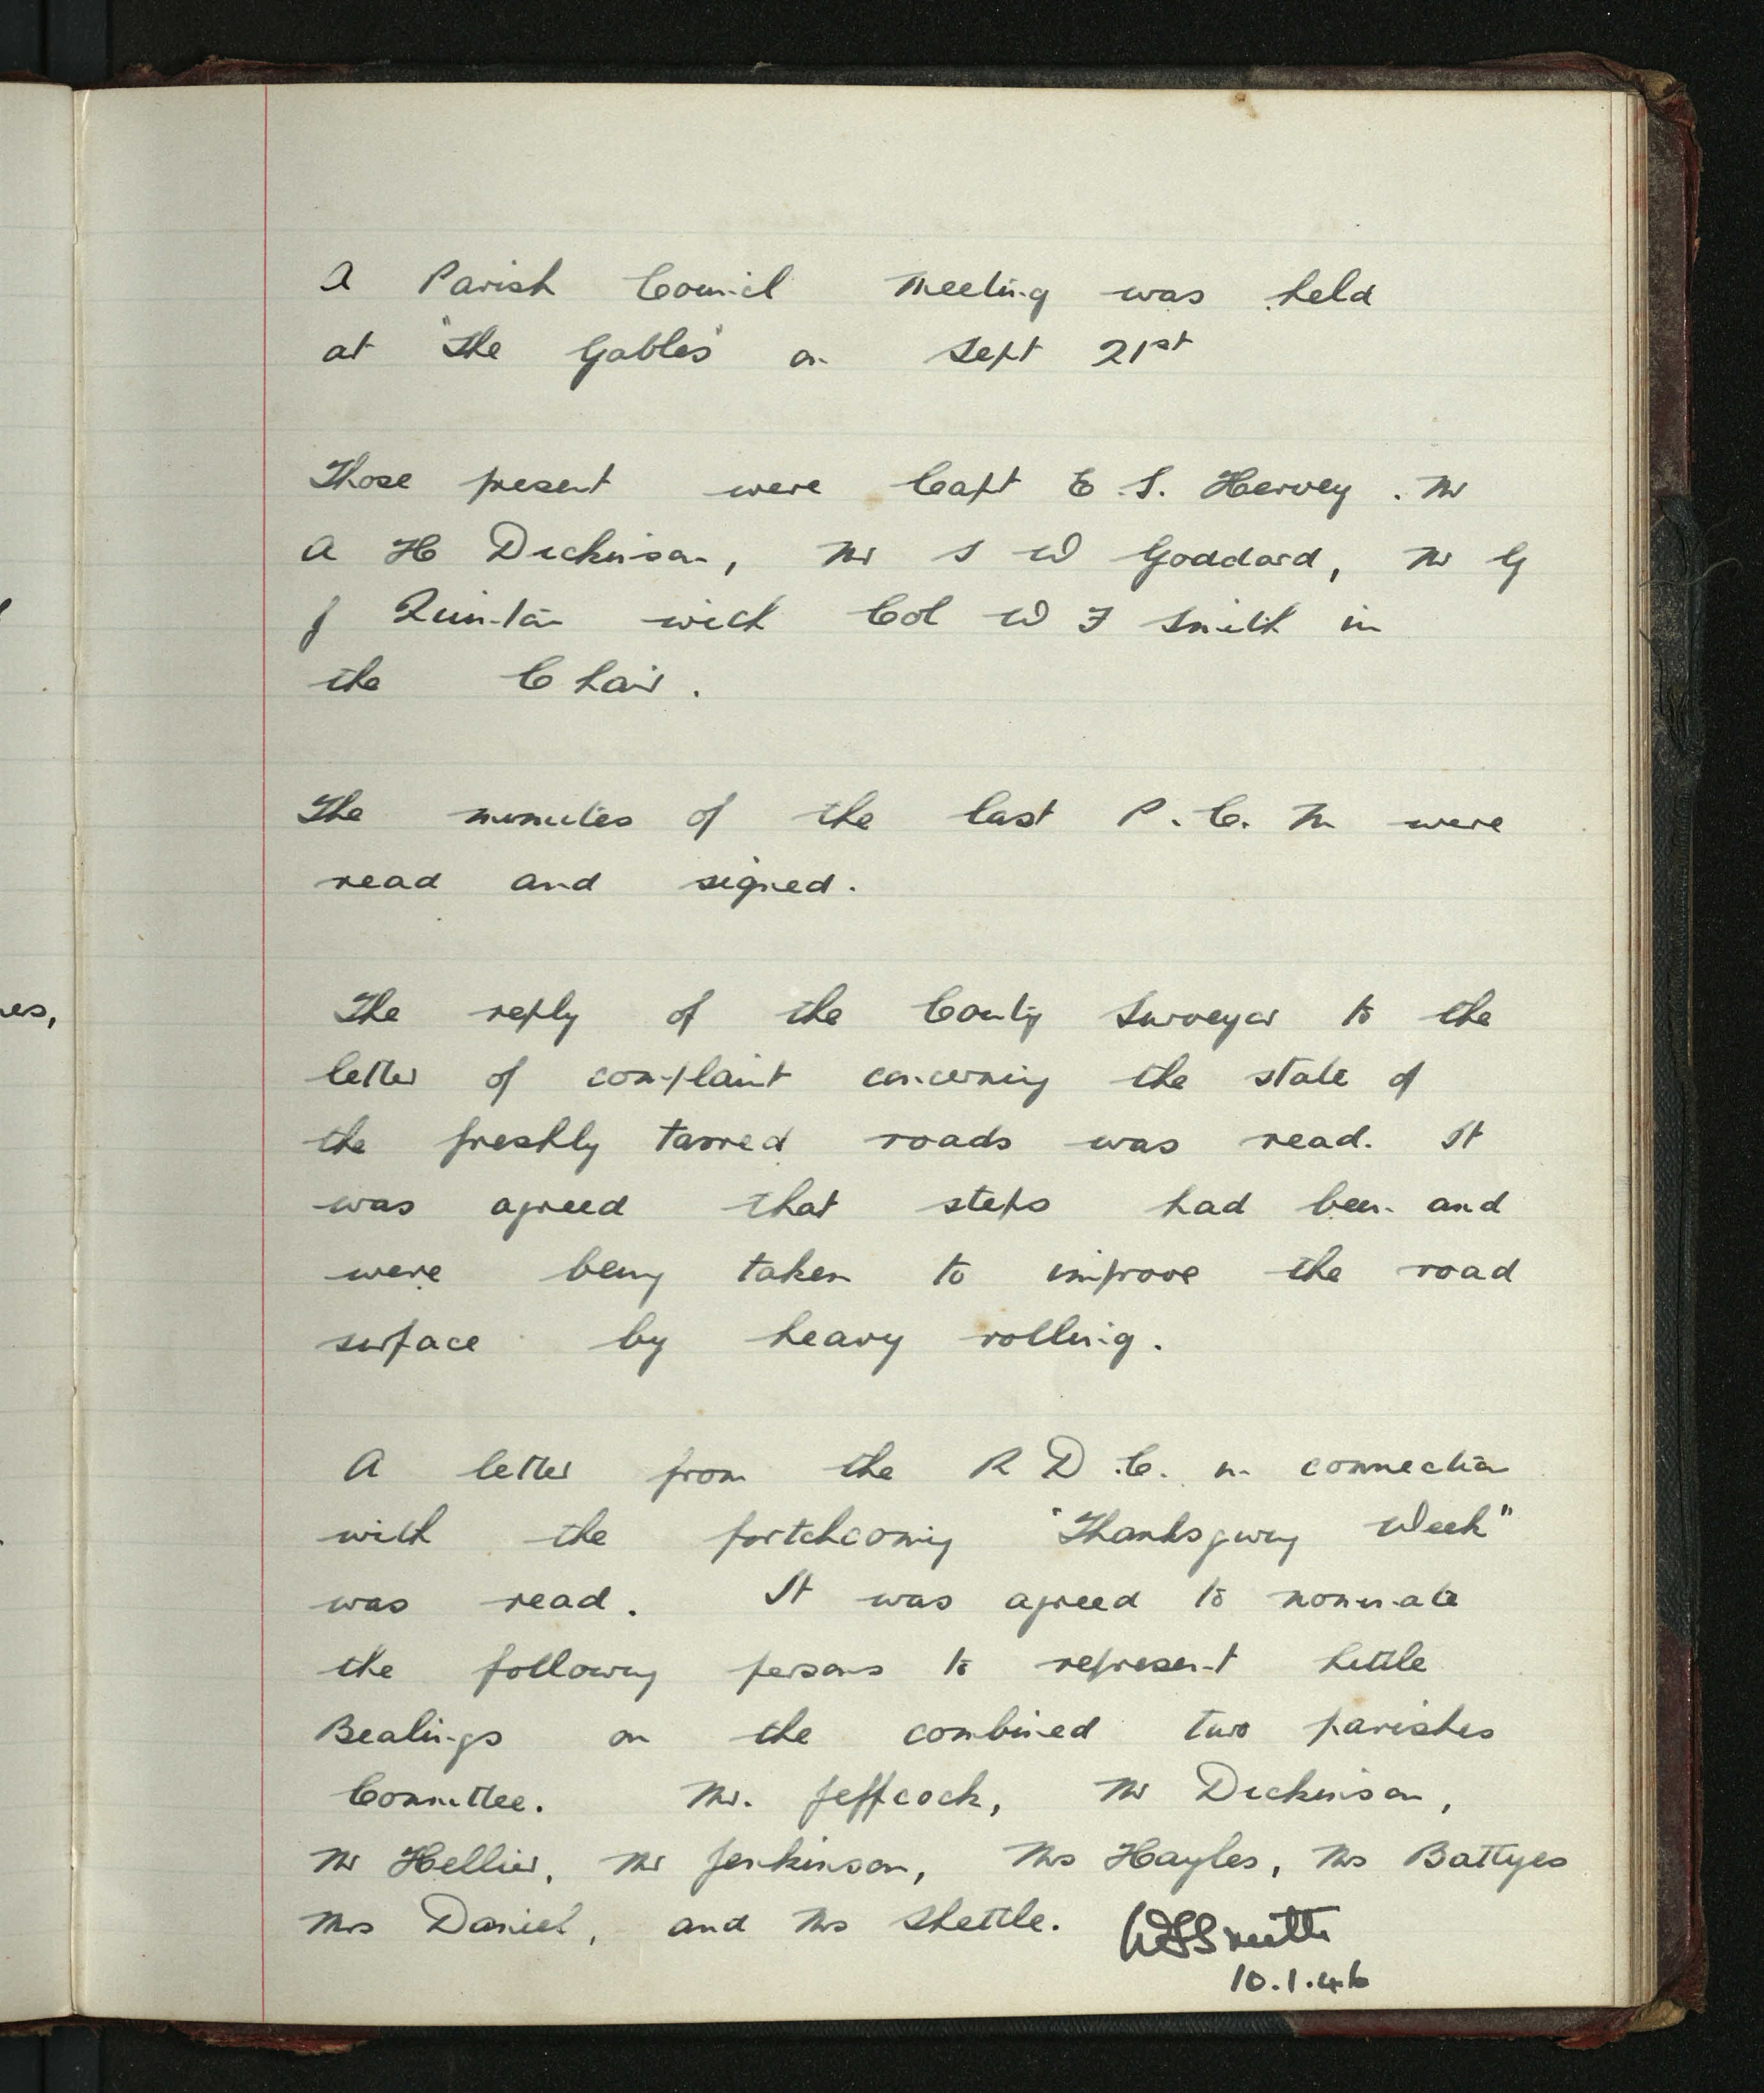 A Parish Council Meeting was held
at "The Gables" on Sept 21st
Those present were Capt E. S. Hervey. Mr
A H Dickinson, Mr S W Goddard, Mr G
J Quintan with Col W F Smith in
the Chair.
The minutes of the last P.C.M were
read and signed.
The reply of the County Surveyor to the
letter of complaint concerning the state of
the freshly tarred roads was read. It
was agreed that steps had been and
were being taken to improve the road
surface by heavy rolling.
A letter from the R D.C. in connection
with the fortchcoming "Thanksgiving Week"
was read. It was agreed to nominate
the following persons to represent Little
Bealings on the combined two parishes
Committee. Mr. Jeffcock, Mr Dickinson,
Mr Hellier, Mr Jenkinson, Mrs Hayles, Mrs Battyes
Mrs Daniel, and Mrs Shettle. WFSmith
10.1.46
es,